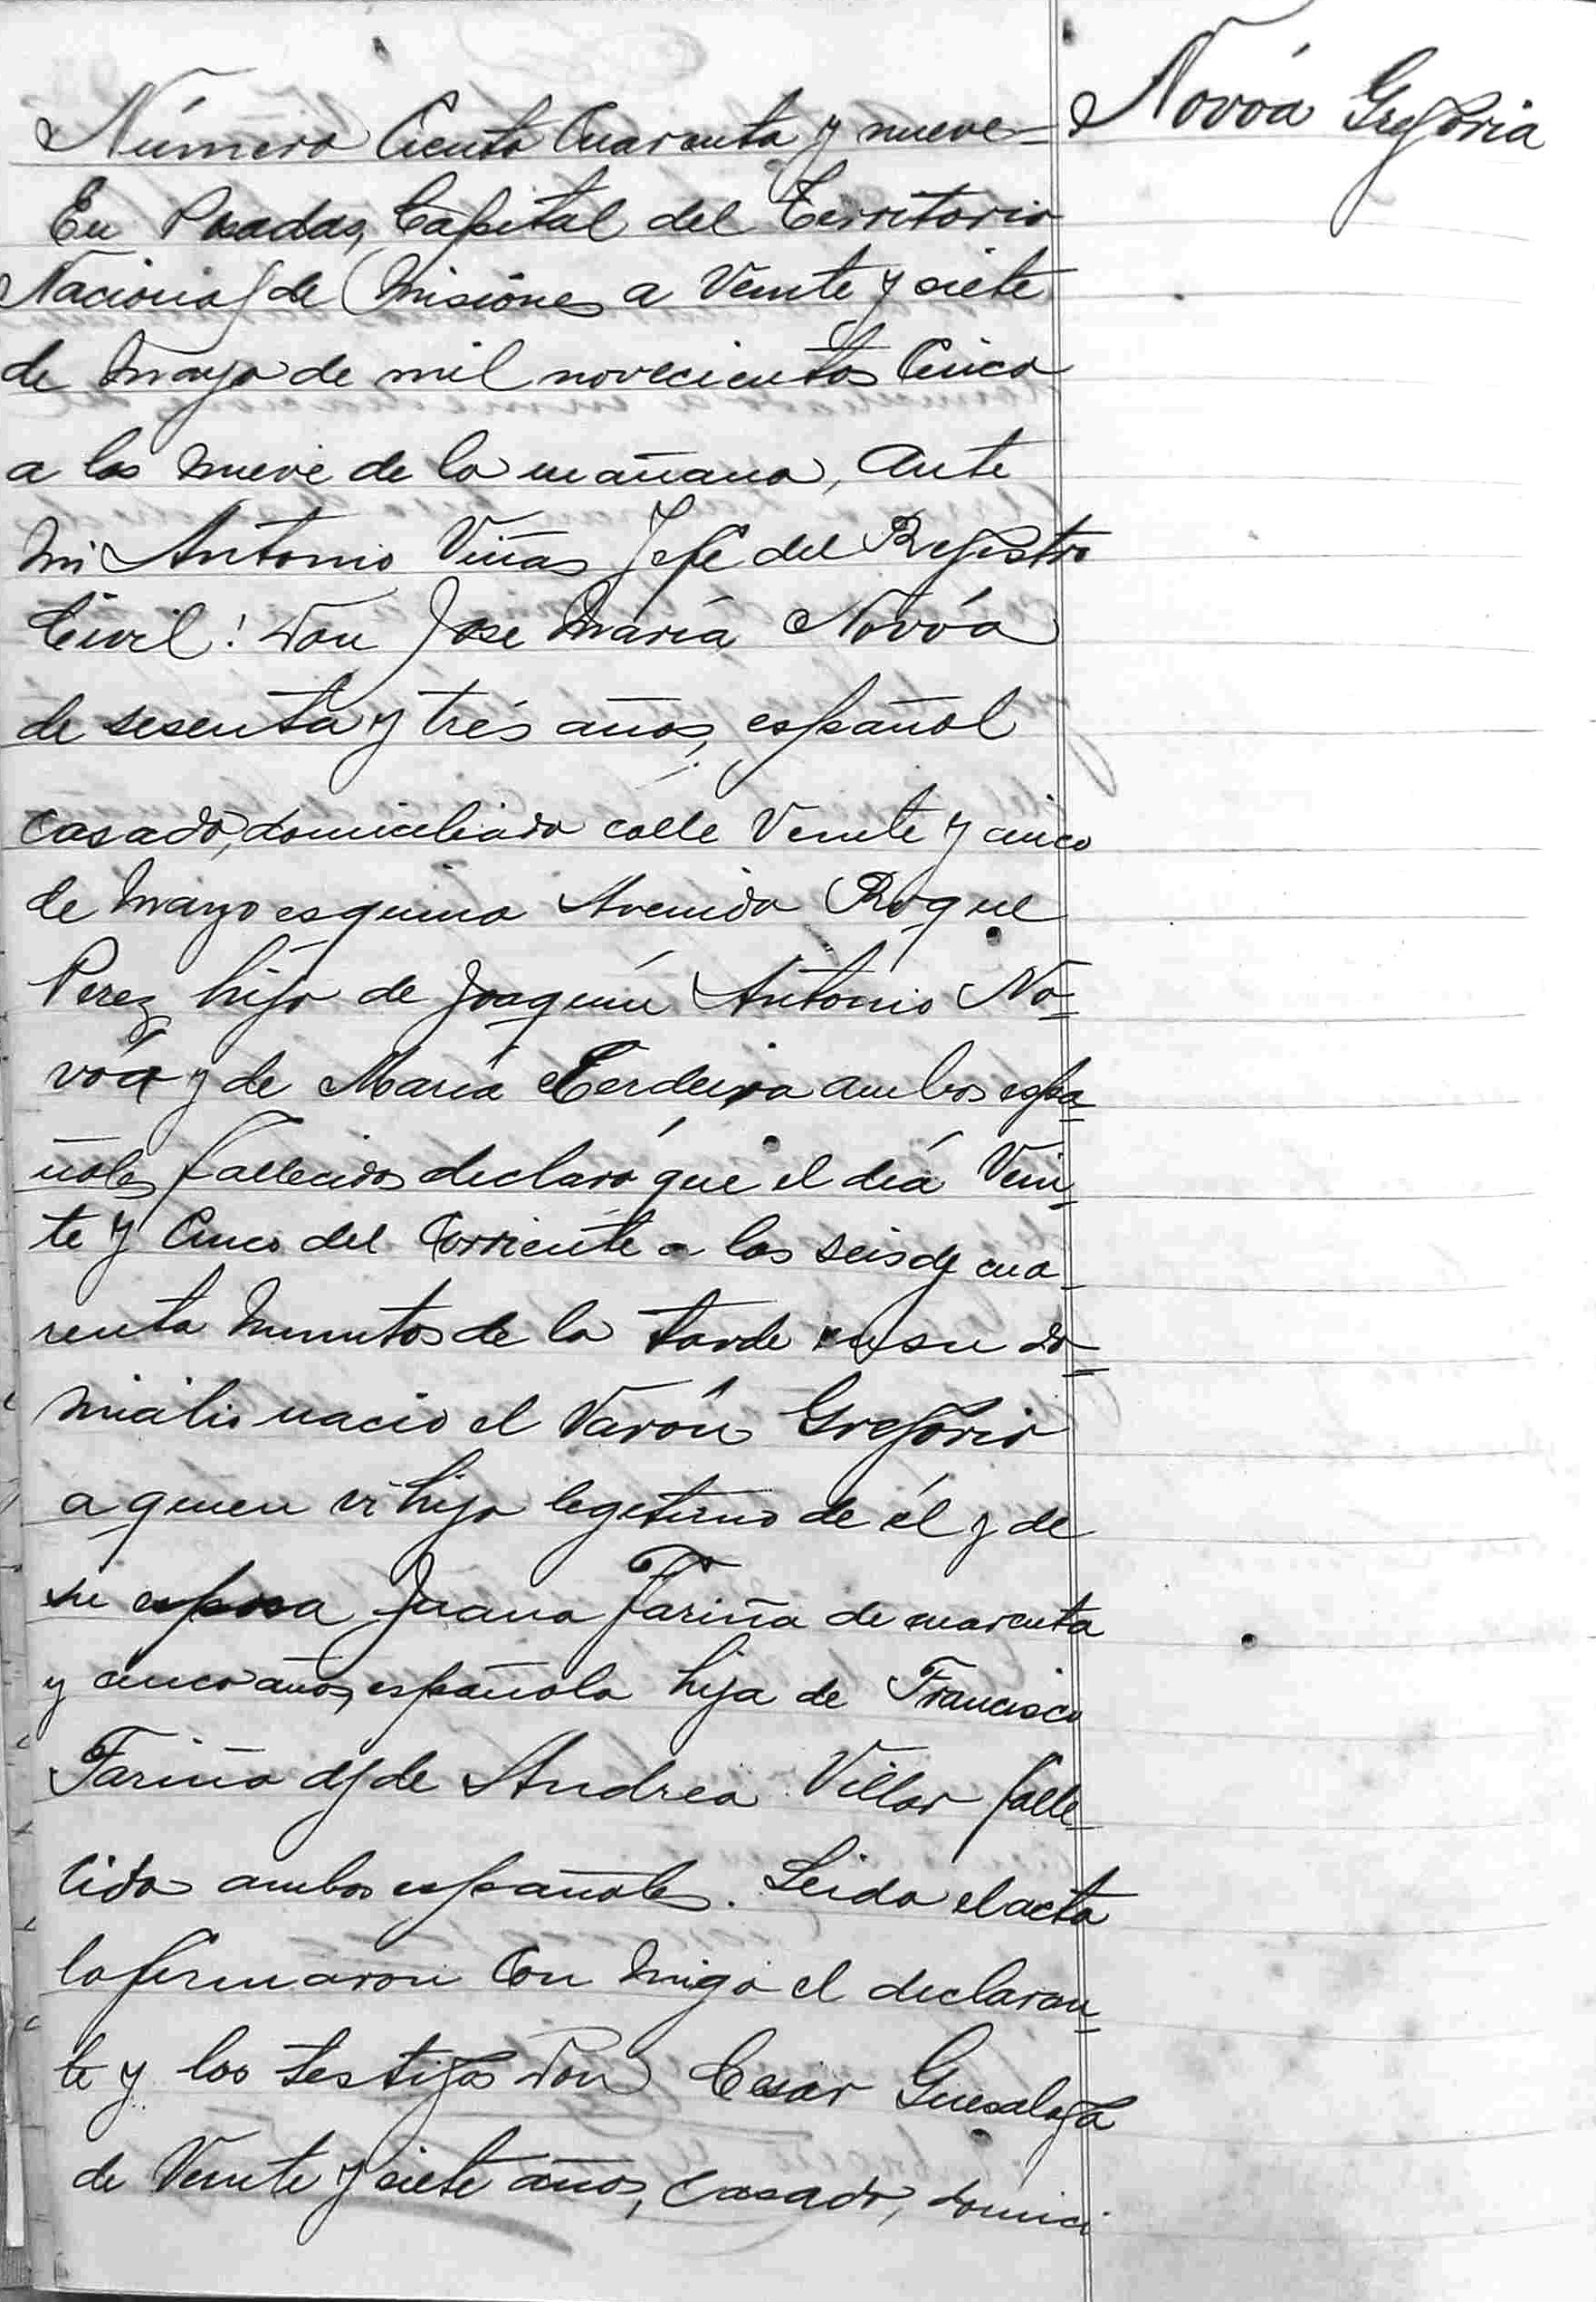 Novóa Gregoria
Número Ciento Cuarenta y nueve=
En Posadas, Capital del Territorio
Nacional de Misiones a Veinte y siete
de Mayo de mil novecientos Cinco
a las nueve de la mañana, ante
mi Antonio Viñas Jefe del Registro
Civil: Don Jose María Novóa
de sesenta y trés años, español
casado, domiciliado calle Veinte y cinco
de Mayo esquina Avenida Roque
Perez hijo de Joaquín Antonio No=
vóa y de María Cerdeira ambos espa=
ñoles fallecidos declaró que el día Vein=
te y Cinco del Corriente a las seis y cua=
renta minutos de la tarde en su do=
micilio nació el Varón Gregorio
a quien vi hijo legitimo de él y de
su esposa Juana Fariña de cuarenta
y cinco años, española hija de Francisco
Fariña y de Andrea Villar falle=
cida ambos españoles. Leida el acta
la firmaron con migo el declaran=
te y los testigos Don Cesar Guesalaga
de Veinte y siete años, casado, domici